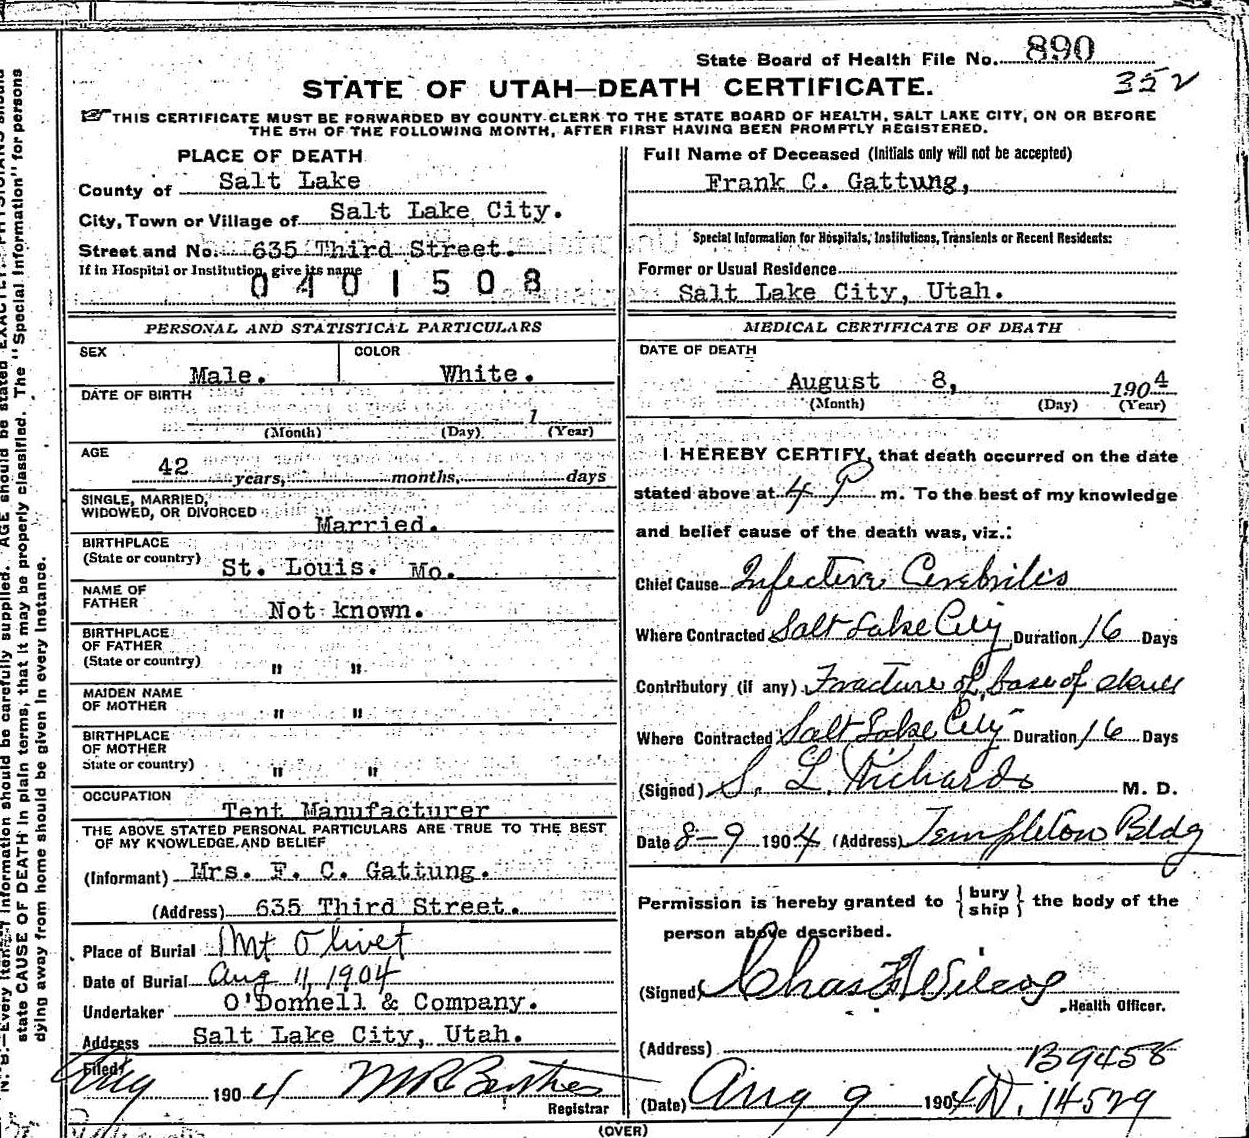 State Board of Health File No. 890
352
STATE OF UTAH—DEATH CERTIFICATE.
THIS CERTIFICATE MUST BE FORWARDED BY COUNTY CLERK TO THE STATE BOARD OF HEALTH, SALT LAKE CITY, ON OR BEFORE
THE 5TH OF THE FOLLOWING MONTH, AFTER FIRST HAVING BEEN PROMPTLY REGISTERED.
PLACE OF DEATH
County of Salt Lake
City, Town or Village of Salt Lake City.
Street and No. 635 Third Street.
If in Hospital or Institution, give its name
0401508
PERSONAL AND STATISTICAL PARTICULARS
SEX COLOR
Male. White.
DATE OF BIRTH
1
(Month) (Day) (Year)
AGE
42 years, months, days
SINGLE, MARRIED,
WIDOWED, OR DIVORCED
Married.
BIRTHPLACE
(State or country) St. Louis. Mo.
NAME OF
FATHER Not known.
BIRTHPLACE
OF FATHER
(State or country) " "
MAIDEN NAME
OF MOTHER " "
BIRTHPLACE
OF MOTHER
State or country) " "
OCCUPATION
Tent Manufacturer
THE ABOVE STATED PERSONAL PARTICULARS ARE TRUE TO THE BEST
OF MY KNOWLEDGE AND BELIEF
(Informant) Mrs. F. C. Gattung.
(Address) 635 Third Street.
Place of Burial Mt Olivet
Date of Burial Aug 11, 1904
Undertaker O'Donnell & Company.
Address Salt Lake City, Utah.
Filed
Aug 1904
Registrar
(OVER)
Full Name of Deceased (Initials only will not be accepted)
Frank C. Gattung,
Special Information for Hospitals, Institutions, Transients or Recent Residents:
Former or Usual Residence
Salt Lake City, Utah.
MEDICAL CERTIFICATE OF DEATH
DATE OF DEATH
August 8, 1904
(Month) (Day) (Year)
I HEREBY CERTIFY, that death occurred on the date
stated above at 4 P m. To the best of my knowledge
and belief cause of the death was, viz.:
Chief Cause Infective Cerebritis
Where Contracted Salt Lake City Duration 16 Days
Contributory (if any) Fracture of base of skull
Where Contracted Salt Lake City Duration 16 Days
(Signed) S. L. Richards M. D.
Date 8-9 1904 (Address) Templeton Bldg
Permission is hereby granted to { bury
ship } the body of the
person above described.
(Signed) Chas F. Wilcox
Health Officer.
(Address)
B9458
(Date) Aug 9 1904 D. 14529
N. B.—Every item of information should be carefully supplied. AGE should be stated EXACTLY. PHYSICIANS should
state CAUSE OF DEATH in plain terms, that it may be properly classified. The "Special Information" for persons
dying away from home should be given in every instance.